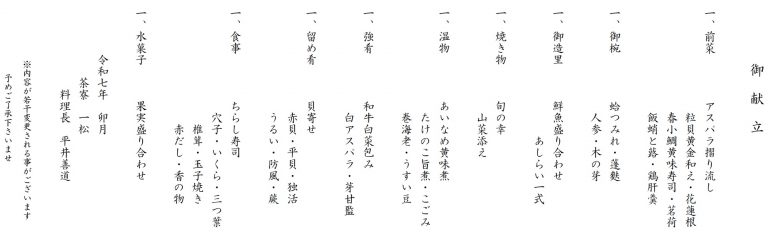 御献立
一、前菜　アスパラ摺り流し
粒貝黄金和え・花蓮根
春小鯛黄味寿司・茗荷
飯蛸と蕗・鶏肝羹
一、御椀　蛤つみれ・蓬麩
人参・木の芽
一、御造里　鮮魚盛り合わせ
あしらい一式
一、焼き物　旬の幸
山菜添え
一、温物　あいなめ黄味煮
たけのこ旨煮・こごみ
巻海老・うすい豆
一、強肴　和牛白菜包み
白アスパラ・芽甘藍
一、留め肴　貝寄せ
赤貝・平貝・独活
うるい・防風・蕨
一、食事　ちらし寿司
穴子・いくら・三つ葉
椎茸・玉子焼き
赤だし・香の物
一、水菓子　果実盛り合わせ
令和七年　卯月
茶寮　一松
料理長　平井善道
※内容が若干変更される事がございます
予めご了承下さいませ